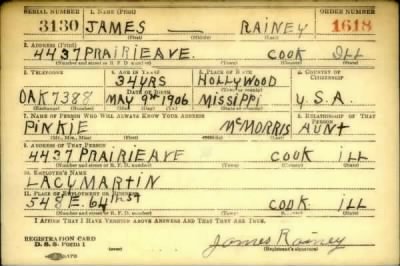 SERIAL NUMBER 1. NAME (Print) ORDER NUMBER
3130 JAMES — RAINEY 1618
(First) (Middle) (Last)
2. ADDRESS (Print)
4437 PRAIRIE AVE. COOK ILL
(Number and street or R. F. D. number) (Town) (County) (State)
3. TELEPHONE 4. AGE IN YEARS 5. PLACE OF BIRTH 6. COUNTRY OF CITIZENSHIP
34 YRS HOLLYWOOD
DATE OF BIRTH (Town or county)
OAK 7388 MAY 9th 1906 MISSISSIPPI U.S.A.
(Exchange) (Number) (Mo.) (Day) (Yr.) (State or country)
7. NAME OF PERSON WHO WILL ALWAYS KNOW YOUR ADDRESS 8. RELATIONSHIP OF THAT PERSON
PINKIE McMORRIS AUNT
(Mr., Mrs., Miss) (First) (Middle) (Last)
9. ADDRESS OF THAT PERSON
4437 PRAIRIE AVE COOK ILL
(Number and street or R. F. D. number) (Town) (County) (State)
10. EMPLOYER'S NAME
LACY MARTIN
11. PLACE OF EMPLOYMENT OR BUSINESS
548 E. 64th St COOK ILL
(Number and street or R. F. D. number) (Town) (County) (State)
I AFFIRM THAT I HAVE VERIFIED ABOVE ANSWERS AND THAT THEY ARE TRUE.
REGISTRATION CARD
D. S. S. Form 1
James Rainey
(Registrant's signature)